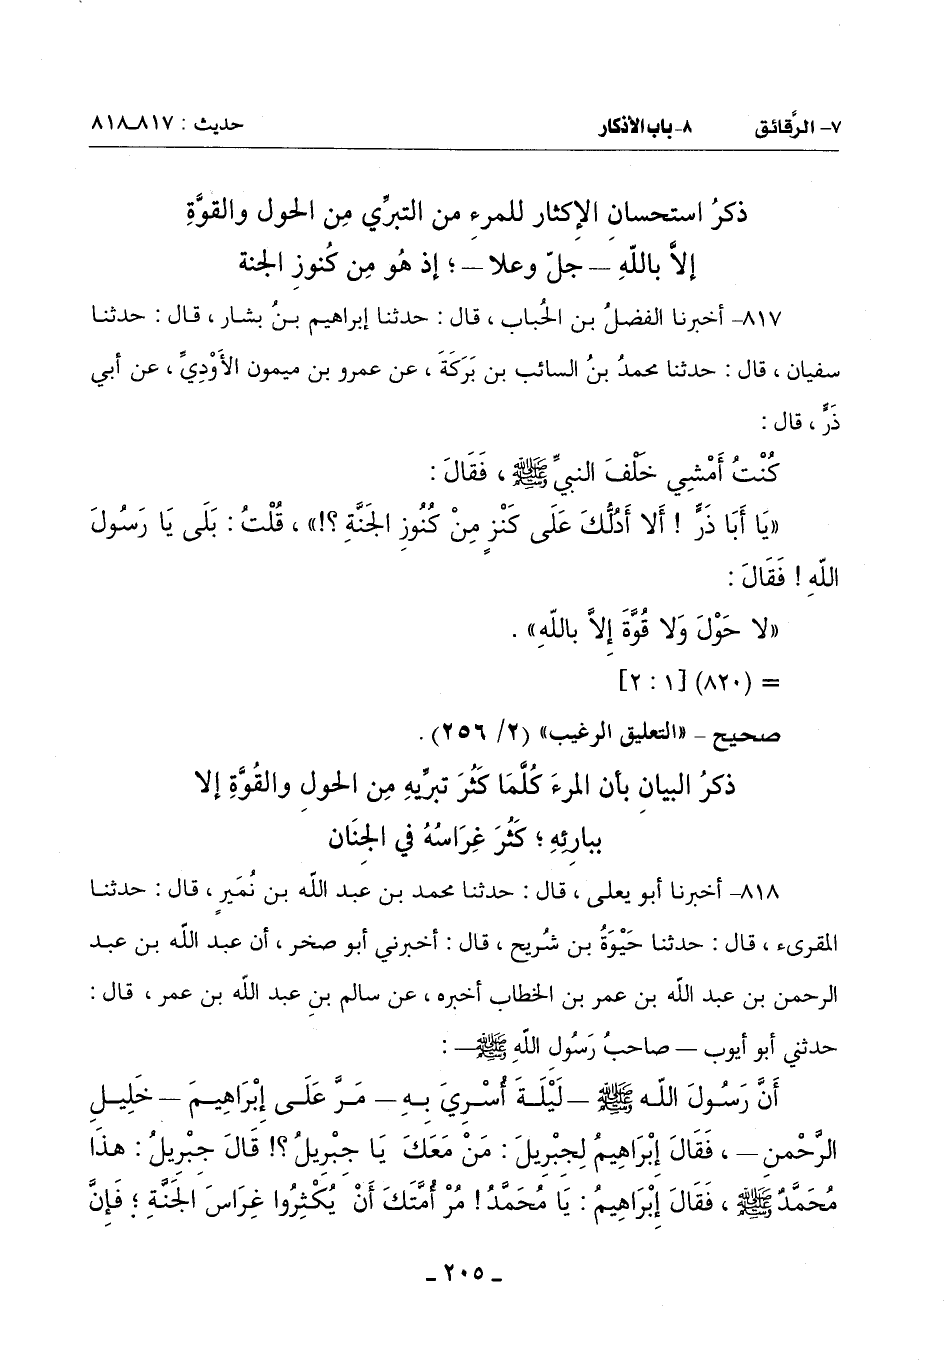 ٧- الرَّقائق ٨- باب الأذكار حديث : ٨١٧ـ٨١٨
ذكرُ استحسانِ الإكثار للمرءِ من التبرِّي مِن الحول والقوَّةِ
إلاَّ باللّهِ – جلّ وعلا – ؛ إذ هُو مِن كُنوزِ الجنة
٨١٧- أخبرنا الفضلُ بن الحُباب ، قال : حدثنا إبراهيم بنُ بشار ، قال : حدثنا
سفيان ، قال : حدثنا محمدُ بنُ السائب بن بَرَكَةَ ، عن عمرو بن ميمون الأَوْدِيِّ ، عن أبي
ذَرٍّ ، قال :
كُنْتُ أَمْشِي خَلْفَ النبيِّ ﷺ ، فَقَالَ :
«يَا أَبَا ذَرٍّ ! أَلا أَدُلُّكَ عَلَى كَنْزٍ مِنْ كُنُوزِ الجَنَّةِ ؟!» ، قُلْتُ : بَلَى يَا رَسُولَ
اللّهِ ! فَقَالَ :
«لا حَوْلَ وَلا قُوَّةَ إلاَّ باللّهِ» .
= (٨٢٠) [١ : ٢]
صحيح – «التعليق الرغيب» (٢/ ٢٥٦) .
ذكرُ البيانِ بأن المرءَ كُلَّمَا كَثُرَ تبرِّيهِ مِن الحولِ والقُوَّةِ إلا
ببارئِهِ ؛ كَثُرَ غِرَاسُهُ في الجِنَان
٨١٨- أخبرنا أبو يعلى ، قال : حدثنا محمد بن عبد اللّه بن نُمَيرٍ ، قال : حدثنا
المقرىء ، قال : حدثنا حَيْوَةُ بن شُريح ، قال : أخبرني أبو صخر ، أن عبد اللّه بن عبد
الرحمن بن عبد اللّه بن عمر بن الخطاب أخبره ، عن سالم بنِ عبد اللّه بن عمر ، قال :
حدثني أبو أيوب – صاحبُ رَسُولِ اللّهِ ﷺ– :
أَنَّ رَسُولَ اللّه ﷺ – لَيْلَةَ أُسْرِيَ بِهِ – مَرَّ عَلَى إِبْرَاهِيمَ – خَلِيلِ
الرَّحْمنِ – ، فَقَالَ إِبْرَاهِيمُ لِجِبْرِيلَ : مَنْ مَعَكَ يَا جِبْرِيلُ ؟! قَالَ جِبْرِيلُ : هذَا
مُحَمَّدٌ ﷺ ، فَقَالَ إِبْرَاهِيمُ : يَا مُحَمَّدُ ! مُرْ أُمَّتَكَ أَنْ يُكْثِرُوا غِرَاسَ الجَنَّةِ ؛ فَإِنَّ
ـ ٢٠٥ ـ